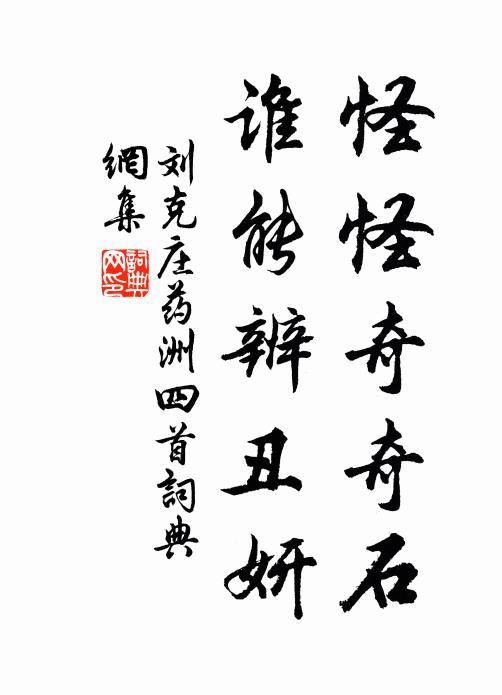 怪怪奇奇石
谁能辨丑妍
刘克庄药洲四首詞典
網集
詞典
网印